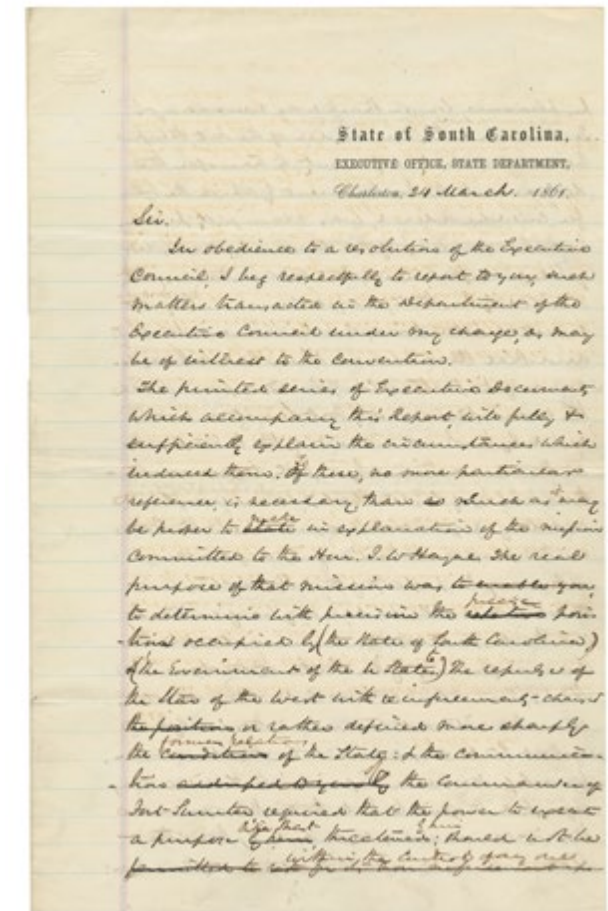 State of South Carolina,
EXECUTIVE OFFICE, STATE DEPARTMENT,
Charleston, 24 March. 1861.
Sir.
In obedience to a resolution of the Executive
Council, I beg respectfully to report to you, such
matters transacted in the Department of the
Executive Council under my charge, as may
be of interest to the Convention.
The printed series of Executive Documents
which accompany this Report, will fully &
sufficiently explain the circumstances which
induced them. Of these, no more particular
reference, is necessary than so much as may
be proper to state make in explanation of the mission
committed to the Hon. I. W Hayne. The real
purpose of that mission was to enable you
to determine with precision the relative precise posi
-tion occupied by (the State of South Carolina)
& (the Government of the U States) The repulse of
the Star of the West with reinforcements - changed
the position or rather defined more sharply
the conditions former relations of the State: & the communica-
-tion the Commander of
Fort Sumter required that the power to execute
a purpose threatened; should not be
permitted to within the control of any one